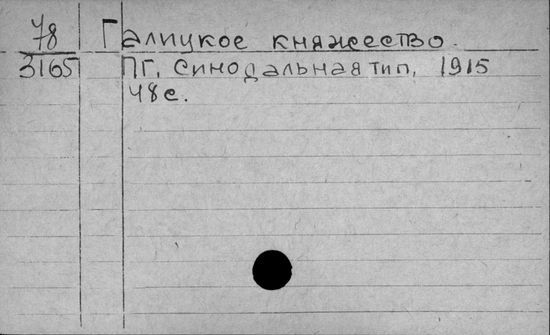 78 Галицкое княжество.
3165 ПГ, Синодальная тип, 1915
48с.